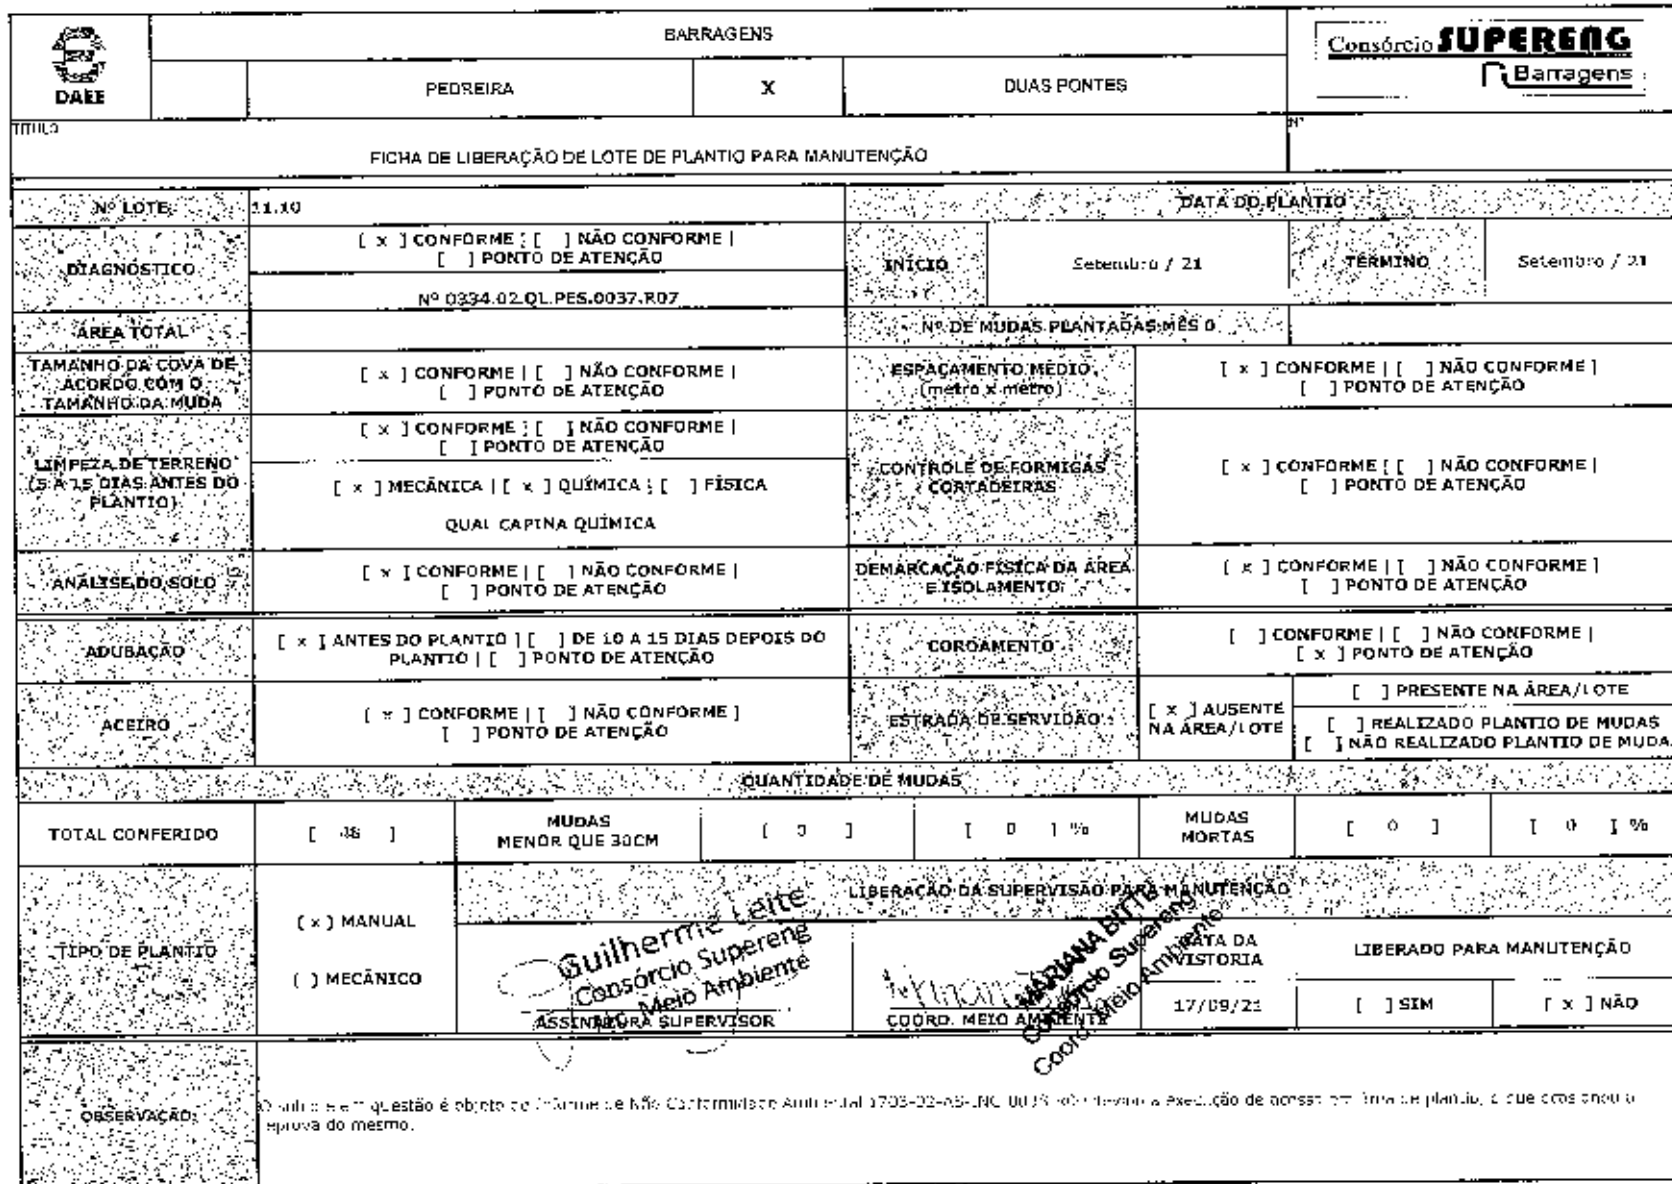 BARRAGENS
Consórcio SUPERENG
Barragens
DAEE
PEDREIRA
X
DUAS PONTES
TÍTULO
Nº
FICHA DE LIBERAÇÃO DE LOTE DE PLANTIO PARA MANUTENÇÃO
Nº LOTE
11.10
DATA DO PLANTIO
DIAGNÓSTICO
[ x ] CONFORME | [ ] NÃO CONFORME |
[ ] PONTO DE ATENÇÃO
Nº 0334.02.QL.PES.0037.R07
INÍCIO
Setembro / 21
TÉRMINO
Setembro / 21
ÁREA TOTAL
Nº DE MUDAS PLANTADAS MÊS 0
TAMANHO DA COVA DE
ACORDO COM O
TAMANHO DA MUDA
[ x ] CONFORME | [ ] NÃO CONFORME |
[ ] PONTO DE ATENÇÃO
ESPAÇAMENTO MÉDIO
(metro x metro)
[ x ] CONFORME | [ ] NÃO CONFORME |
[ ] PONTO DE ATENÇÃO
LIMPEZA DE TERRENO
(5 A 15 DIAS ANTES DO
PLANTIO)
[ x ] CONFORME | [ ] NÃO CONFORME |
[ ] PONTO DE ATENÇÃO
[ x ] MECÂNICA | [ x ] QUÍMICA | [ ] FÍSICA
QUAL CAPINA QUÍMICA
CONTROLE DE FORMIGAS
CORTADEIRAS
[ x ] CONFORME | [ ] NÃO CONFORME |
[ ] PONTO DE ATENÇÃO
ANÁLISE DO SOLO
[ x ] CONFORME | [ ] NÃO CONFORME |
[ ] PONTO DE ATENÇÃO
DEMARCAÇÃO FÍSICA DA ÁREA
E ISOLAMENTO
[ x ] CONFORME | [ ] NÃO CONFORME |
[ ] PONTO DE ATENÇÃO
ADUBAÇÃO
[ x ] ANTES DO PLANTIO | [ ] DE 10 A 15 DIAS DEPOIS DO
PLANTIO | [ ] PONTO DE ATENÇÃO
COROAMENTO
[ ] CONFORME | [ ] NÃO CONFORME |
[ x ] PONTO DE ATENÇÃO
ACEIRO
[ x ] CONFORME | [ ] NÃO CONFORME |
[ ] PONTO DE ATENÇÃO
ESTRADA DE SERVIDÃO
[ x ] AUSENTE
NA ÁREA/LOTE
[ ] PRESENTE NA ÁREA/LOTE
[ ] REALIZADO PLANTIO DE MUDAS
[ ] NÃO REALIZADO PLANTIO DE MUDA
QUANTIDADE DE MUDAS
TOTAL CONFERIDO
[ ]
MUDAS
MENOR QUE 30CM
[ 0 ]
[ 0 ] %
MUDAS
MORTAS
[ 0 ]
[ 0 ] %
TIPO DE PLANTIO
( x ) MANUAL
( ) MECÂNICO
LIBERAÇÃO DA SUPERVISÃO PARA MANUTENÇÃO
Guilherme Leite
Consórcio Supereng
Meio Ambiente
ASSINATURA SUPERVISOR
MARIANA
Consórcio Supereng
Coord. Meio Ambiente
COORD. MEIO AMBIENTE
DATA DA
VISTORIA
17/09/21
LIBERADO PARA MANUTENÇÃO
[ ] SIM
[ x ] NÃO
OBSERVAÇÃO:
em questão é objeto de Informe de Não Conformidade Ambiental devido a execução de acesso em área de plantio, o que ocasionou a
reprova do mesmo.